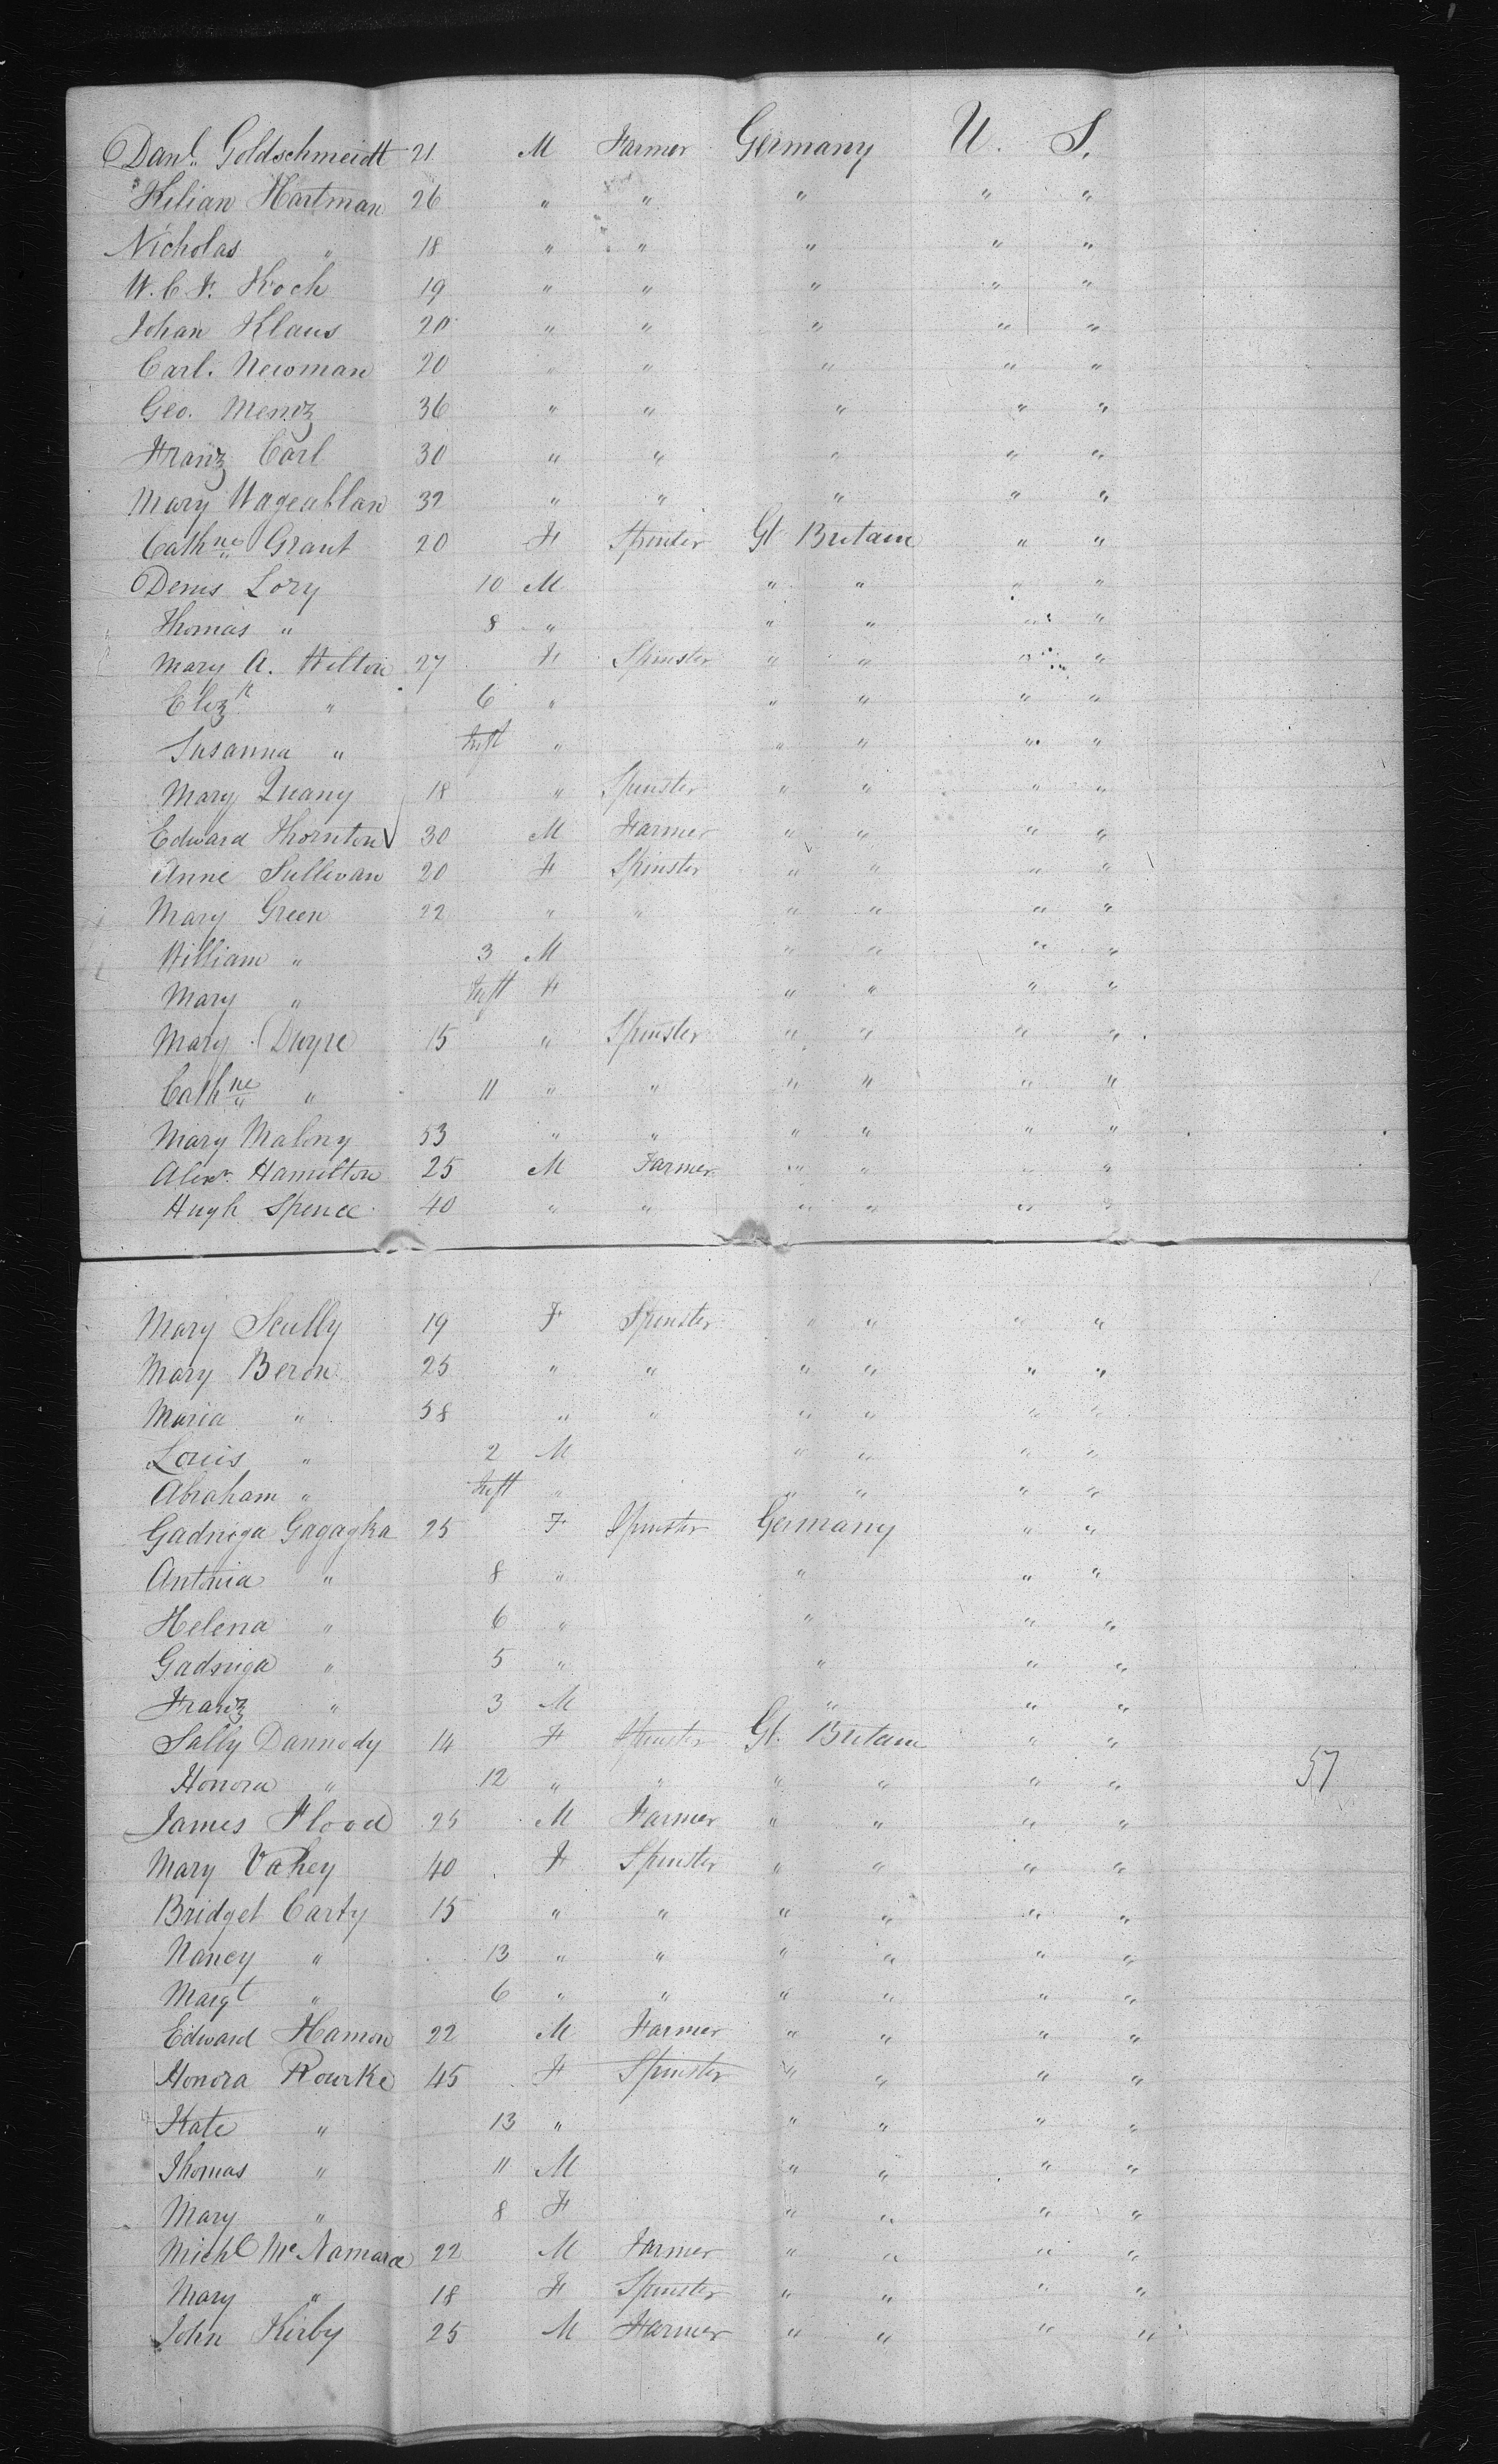 Danl. Goldschmeidt 21 M Farmer Germany U. S.
Kilian Hartman 26 " " " " "
Nicholas " 18 " " " " "
W. C. F. Koch 19 " " " " "
Johan Klaus 20 " " " " "
Carl. Newman 20 " " " " "
Geo. Mentz 36 " " " " "
Franz Carl 30 " " " " "
Mary Wageablan 32 " " " " "
Cathne Grant 20 F Spinster Gt Britain " "
Denis Lory 10 M " " " "
Thomas " 8 " " " " "
Mary A. Wilton 27 F Spinster " " " "
Elizh " 6 " " " " "
Susanna " Inft " " " " "
Mary Quany 18 " Spinster " " " "
Edward Thornton 30 M Farmer " " " "
Anne Sullivan 20 F Spinster " " " "
Mary Green 22 " " " " " "
William " 3 M " " " "
Mary " Inft F " " " "
Mary Dwyre 15 " Spinster " " " "
Cathne " 11 " " " " " "
Mary Malony 53 " " " " " "
Alexr. Hamilton 25 M Farmer " " " "
Hugh Spence 40 " " " " " "
Mary Scully 19 F Spinster " " " "
Mary Beron 25 " " " " " "
Maria " 58 " " " " " "
Louis " 2 M " " " "
Abraham " Inft " " " " "
Gadniga Gagagka 25 F Spinster Germany " "
Antonia " 8 " " " "
Helena " 6 " " " "
Gadniga " 5 " " " "
Franz " 3 M " " "
Sally Dannody 14 F Spinster Gt. Britain " "
Honora " 12 " " " " " " 57
James Flood 25 M Farmer " " " "
Mary Vahey 40 F Spinster " " " "
Bridget Carty 15 " " " " " "
Nancy " 13 " " " " " "
Margt " 6 " " " " " "
Edward Hamon 22 M Farmer " " " "
Honora Rourke 45 F Spinster " " " "
Kate " 13 " " " " "
Thomas " 11 M " " " "
Mary " 8 F " " " "
Michl McNamara 22 M Farmer " " " "
Mary " 18 F Spinster " " " "
John Kirby 25 M Farmer " " " "